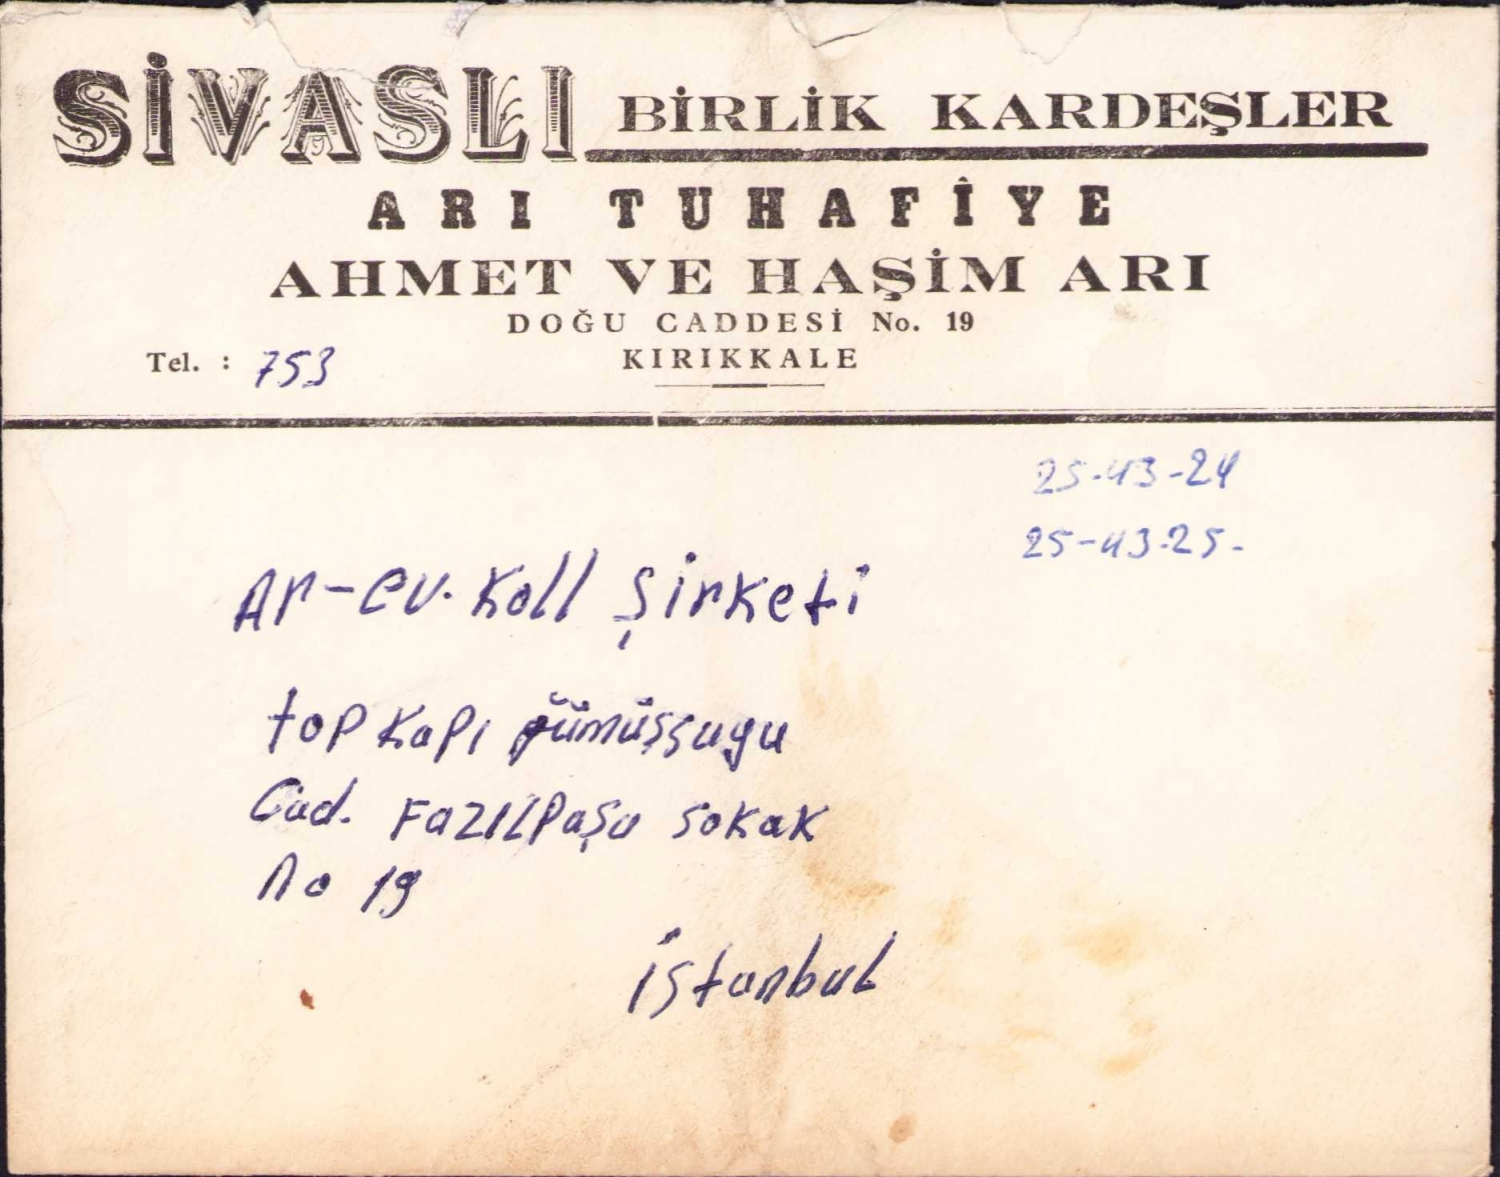 SİVASLI BİRLİK KARDEŞLER
ARI TUHAFİYE
AHMET VE HAŞİM ARI
DOĞU CADDESİ No. 19
Tel. : 753
KIRIKKALE
25-43-24
25-43-25-
Ar-ev. Koll Şirketi
topkapı gümüşsuyu
Cad. Fazılpaşa sokak
No 19
İstanbul